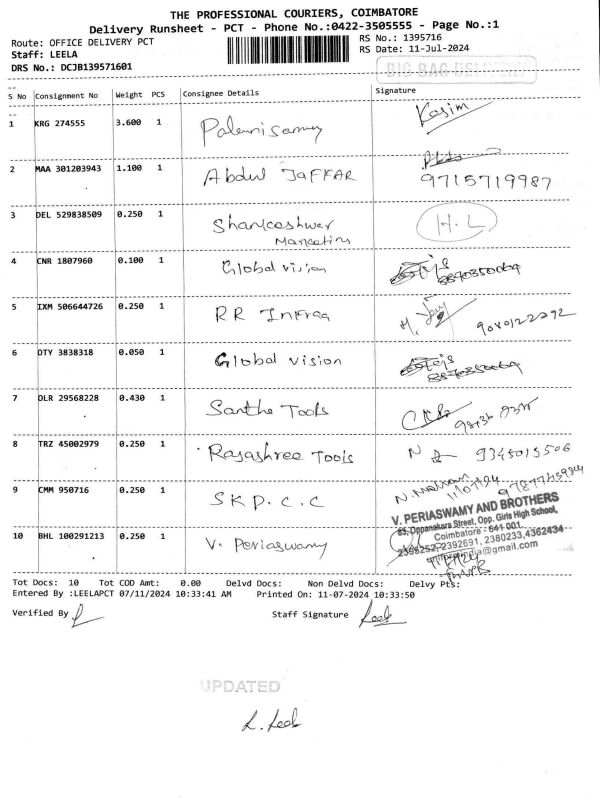 THE PROFESSIONAL COURIERS, COIMBATORE
Delivery Runsheet - PCT - Phone No.:0422-3505555 - Page No.:1
Route: OFFICE DELIVERY PCT
RS No.: 1395716
Staff: LEELA
RS Date: 11-Jul-2024
DRS No.: DCJB139571601
BIG BAG DELIVERY
S No Consignment No Weight PCS Consignee Details Signature
1 KRG 274555 3.600 1 Palanisamy Kasim
2 MAA 301203943 1.100 1 Abdul JAFFAR
9715719987
3 DEL 529838509 0.250 1 Shankeshwar H.L
Marketing
4 CNR 1807960 0.100 1 Global vision
8870350069
5 IXM 506644726 0.250 1 RR Infraa 9080122292
6 OTY 3838318 0.050 1 Global vision
8870350069
7 OLR 29568228 0.430 1 Santhe Tools
8 TRZ 45002979 0.250 1 Rajashree Tools 9345015506
9 CMM 950716 0.250 1 S K P. C. C
11/07/24
V. PERIASWAMY AND BROTHERS
83, Oppanakara Street, Opp. Girls High School,
Coimbatore - 641 001.
10 BHL 100291213 0.250 1 V. Periaswamy
2395252, 2392691, 2380233, 4362434
Tot Docs: 10 Tot COD Amt: 0.00 Delvd Docs: Non Delvd Docs: Delvy Pts:
Entered By :LEELAPCT 07/11/2024 10:33:41 AM Printed On: 11-07-2024 10:33:50
Verified By Staff Signature Leela
UPDATED
L. Leela